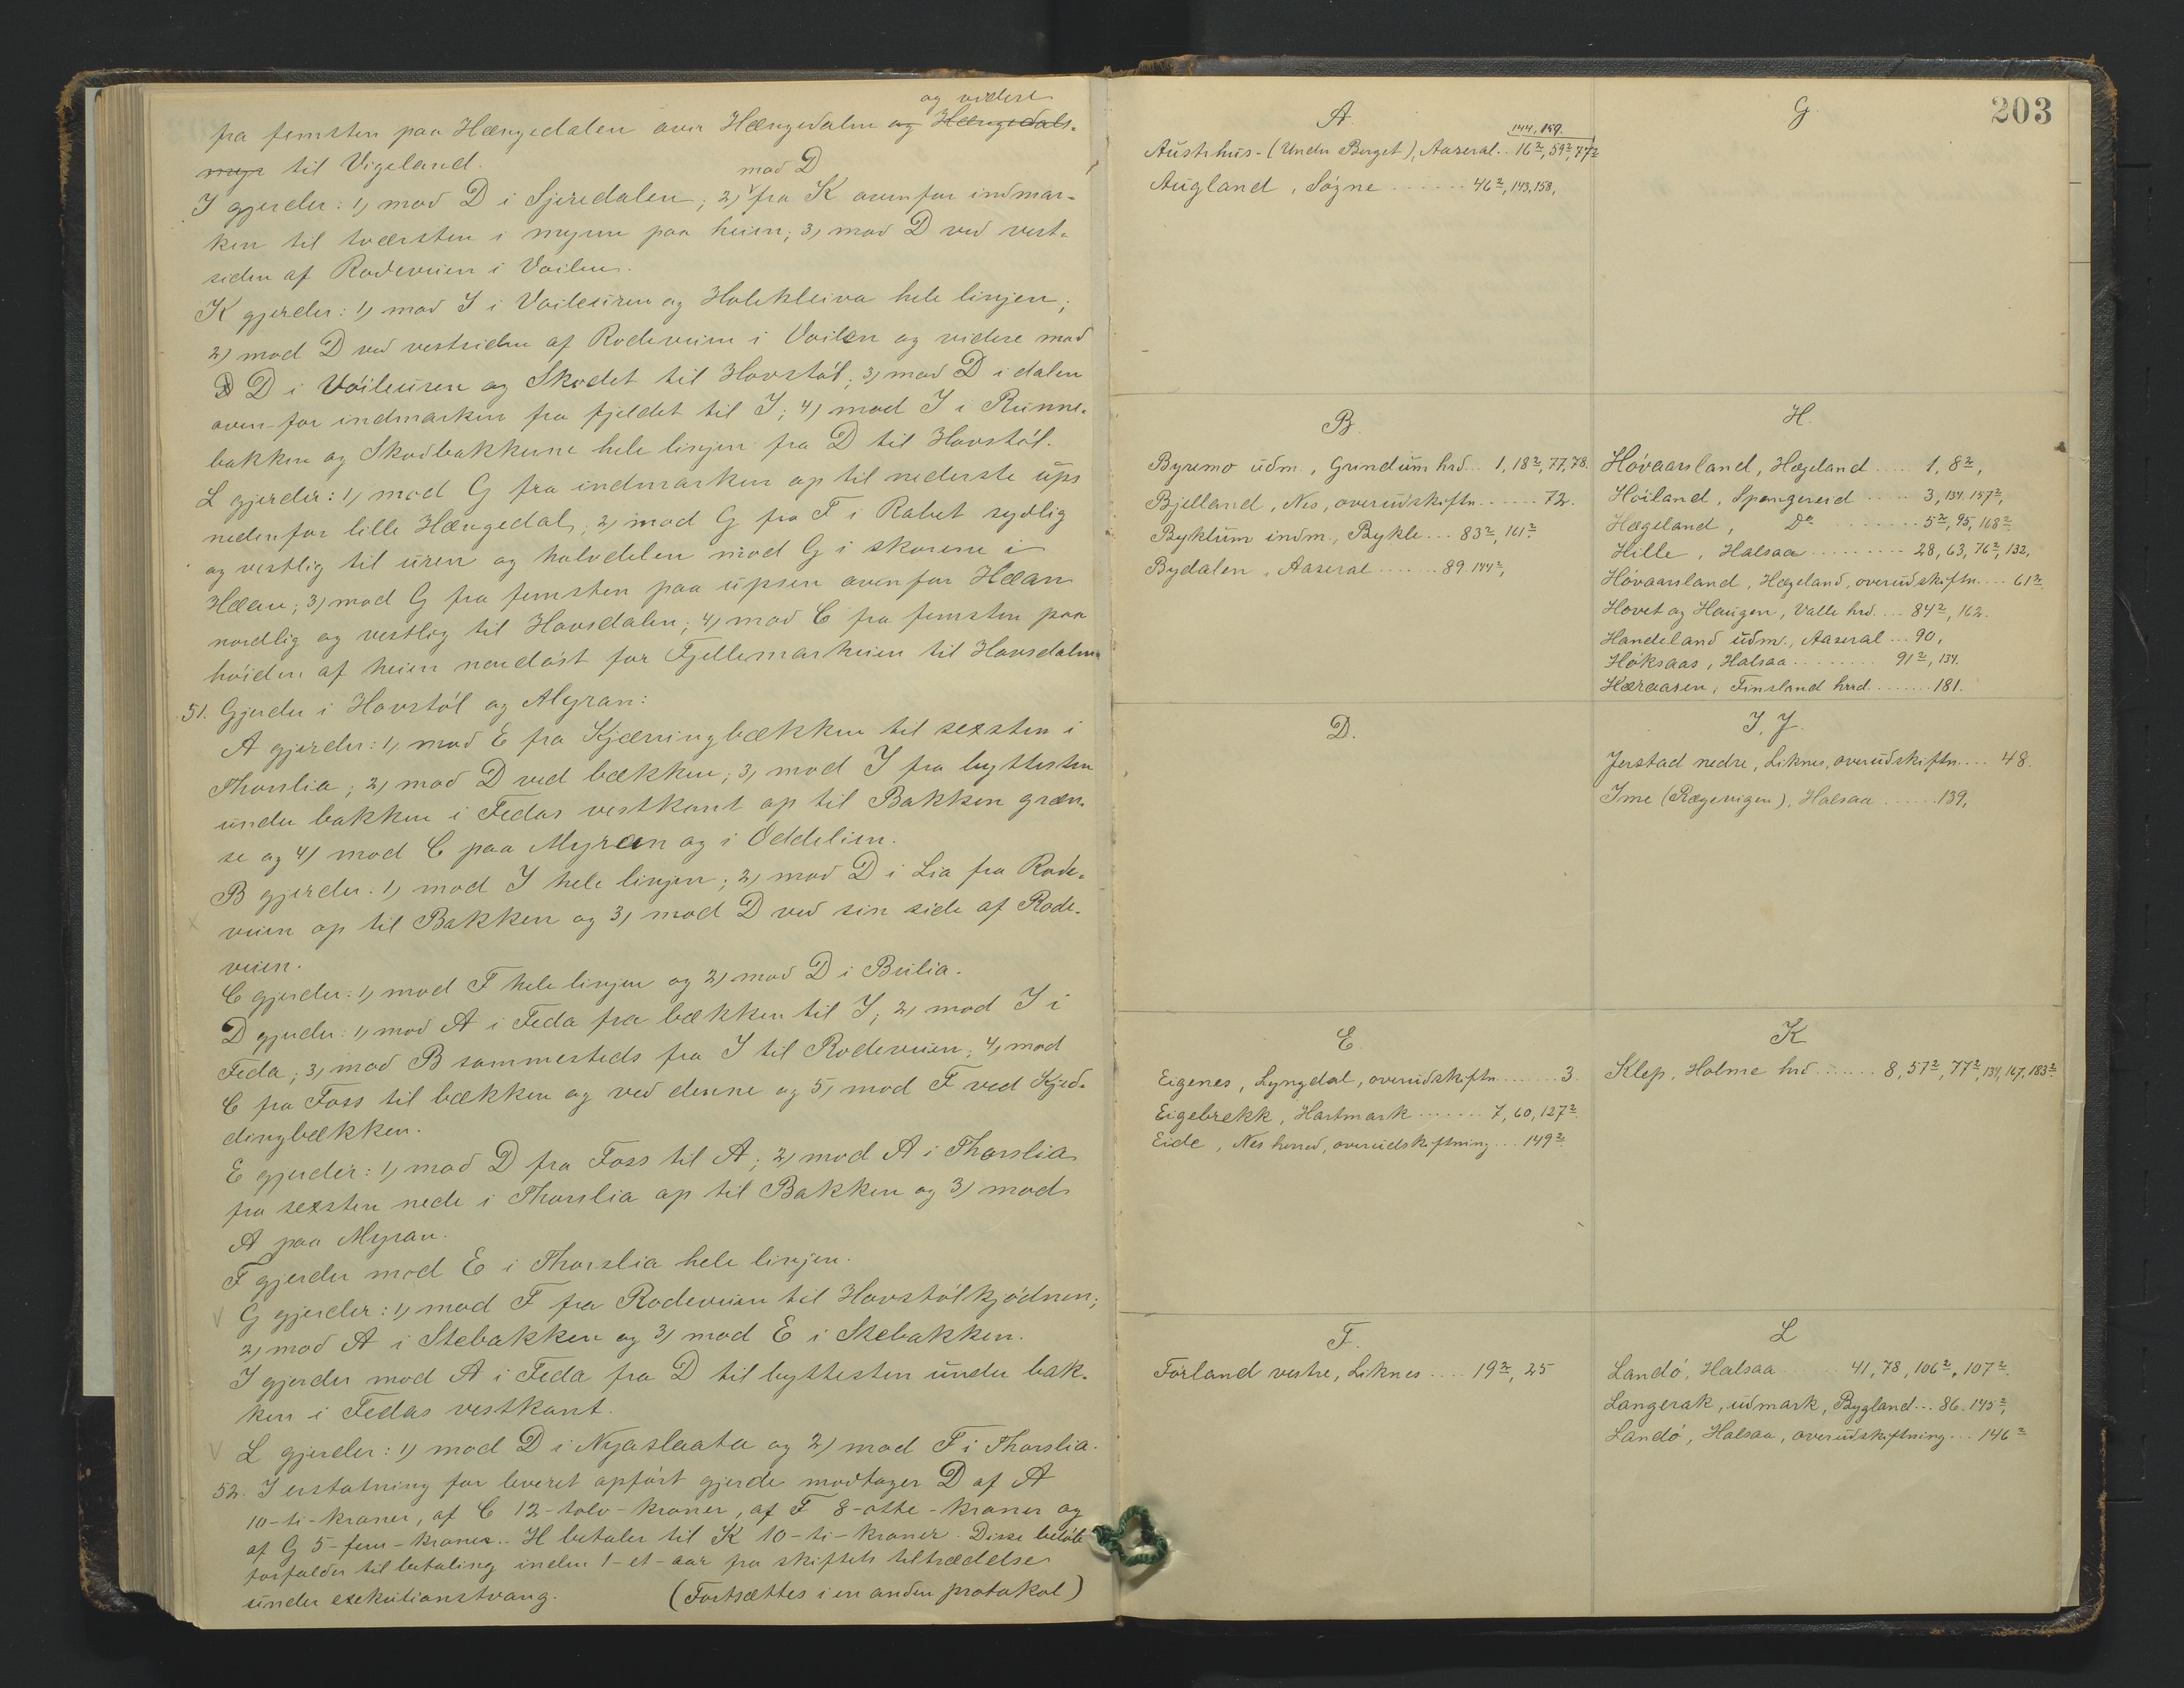 og videre
fra femsten paa Hængedalen over Hængedalen og Hængedals-
myr til Vigeland.
mod D
I gjerder: 1) mod D i Sjeredalen; 2) fra K ovenfor indmar-
ken til tværsten i myren paa heien; 3) mod D ved vest-
siden af Rodeveien i Voilen.
K gjerder: 1) mod I i Voileuren og Holekleiva hele linjen;
2) mod D ved vestsiden af Rodeveien i Voilen og videre mod
D i Vöileuren og Skodet til Hovstöl; 3) mod D i dalen
oven-for indmarken fra fjeldet til I; 4) mod I i Runne-
bakken og Skodbakkene hele linjen fra D til Hovstöl.
L gjerder: 1) mod G fra indmarken op til nederste ups
nedenfor lille Hængedal; 2) mod G fra F i Rabet sydlig
og vestlig til uren og halvdelen mod G i skorene i
Hæan; 3) mod G fra femsten paa upsen ovenfor Hæan
nordlig og vestlig til Hovsdalen; 4) mod C fra femsten paa
höiden af heien nordöst for Fjellemarheien til Hovsdalen
51. Gjerder i Hovstöl og Myran:
A gjerder: 1) mod E fra Kjærringbækken til sexsten i
Thorslia; 2) mod D ved bækken; 3) mod I fra byttesten
under bakken i Fedas vestkant op til Bakken græn-
se og 4) mod C paa Myran og i Oddelien.
B gjerder: 1) mod I hele linjen; 2) mod D i Lia fra Rode-
veien op til Bakken og 3) mod D ved sin side af Rode-
veien.
C gjerder: 1) mod F hele linjen og 2) mod D i Bulia.
D gjerder: 1) mod A i Feda fra bækken til I; 2) mod I i
Feda; 3) mod B sammesteds fra I til Rodeveien; 4) mod
C fra Foss til bækken og ved denne og 5) mod F ved Kjed-
dingbækken.
E gjerder: 1) mod D fra Foss til A; 2) mod A i Thorslia
fra sexsten nede i Thorslia op til Bakken og 3) mod
A paa Myran.
F gjerder mod E i Thorslia hele linjen.
G gjerder: 1) mod F fra Rodeveien til Hovstölkjödnen;
2) mod A i Stebakken og 3) mod E i Stebakken.
I gjerder mod A i Feda fra D til byttesten under bak-
ken i Fedas vestkant.
L gjerder: 1) mod D i Nyaslaata og 2) mod F i Thorslia.
52. I erstatning for leveret opfört gjerde modtager D af A
10-ti-kroner, af C 12-tolv-kroner, af F 8-otte-kroner og
af G 5-fem-kroner. H betaler til K 10-ti-kroner. Disse belöb
forfalder til betaling inden 1-et-aar fra skiftets tiltrædelse
under exekutionstvang. (Fortsættes i en anden protokol)
203
A.
144, 159.
Austrhus-(Under Berget), Aaseral.. 16², 59², 77²
Augland, Søgne ...... 46², 143, 158,
G.
B.
Byremo udm., Grindum hrd... 1, 18², 77, 78.
Bjelland, Nes, overudskiftn. ..... 72.
Byklum indm., Bykle ... 83², 161²
Bydalen, Aaseral ...... 89. 144²,
H.
Hövaarsland, Hægeland .... 1, 8²,
Höiland, Spangereid .... 3, 134. 157²,
Hægeland, Do ...... 5², 95, 168²
Hille, Halsaa ......... 28, 63, 76², 132,
Hövaarsland, Hægeland, overudskiftn.... 61²
Hovet og Haugen, Valle hrd. ... 84², 162.
Handeland udm., Aaseral ... 90,
Höksaas, Halsaa ........ 91², 134.
Hæraasen, Finsland hrrd. ...... 181.
D.
I, J.
Jerstad nedre, Liknes, overudskiftn.... 48.
Ime (Rægevigen), Halsaa ...... 139,
E.
Eigenes, Lyngdal, overudskiftn. ...... 3.
Eigebrekk, Hartmark ...... 7, 60, 127²
Eide, Nes herred, overudskiftning ... 149²
K
Klep, Holme hrd ...... 8, 57², 77², 134, 167, 183²
F.
Förland vestre, Liknes .... 19², 25
L
Landö, Halsaa ...... 41, 78, 106², 107².
Langerak, udmark, Bygland ... 86. 145²,
Landö, Halsaa, overudskiftning ... 146²